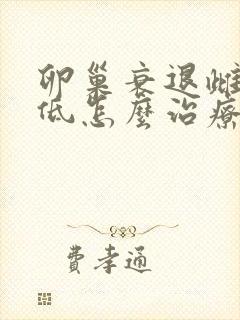 卵巢衰退雌
低怎麼治療
費孝通